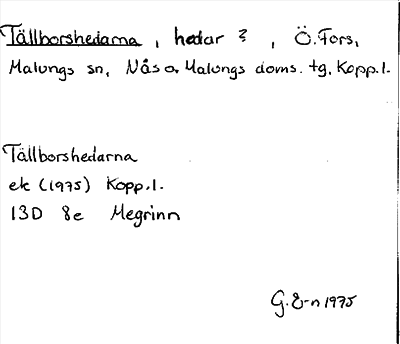 Tällborshedarna, hedar?, Ö. Fors,
Malungs sn, Nås o. Malungs doms. tg, Kopp. l.
Tällborshedarna
ek (1975) Kopp. l.
13D 8e Megrinn
G. E-n 1975